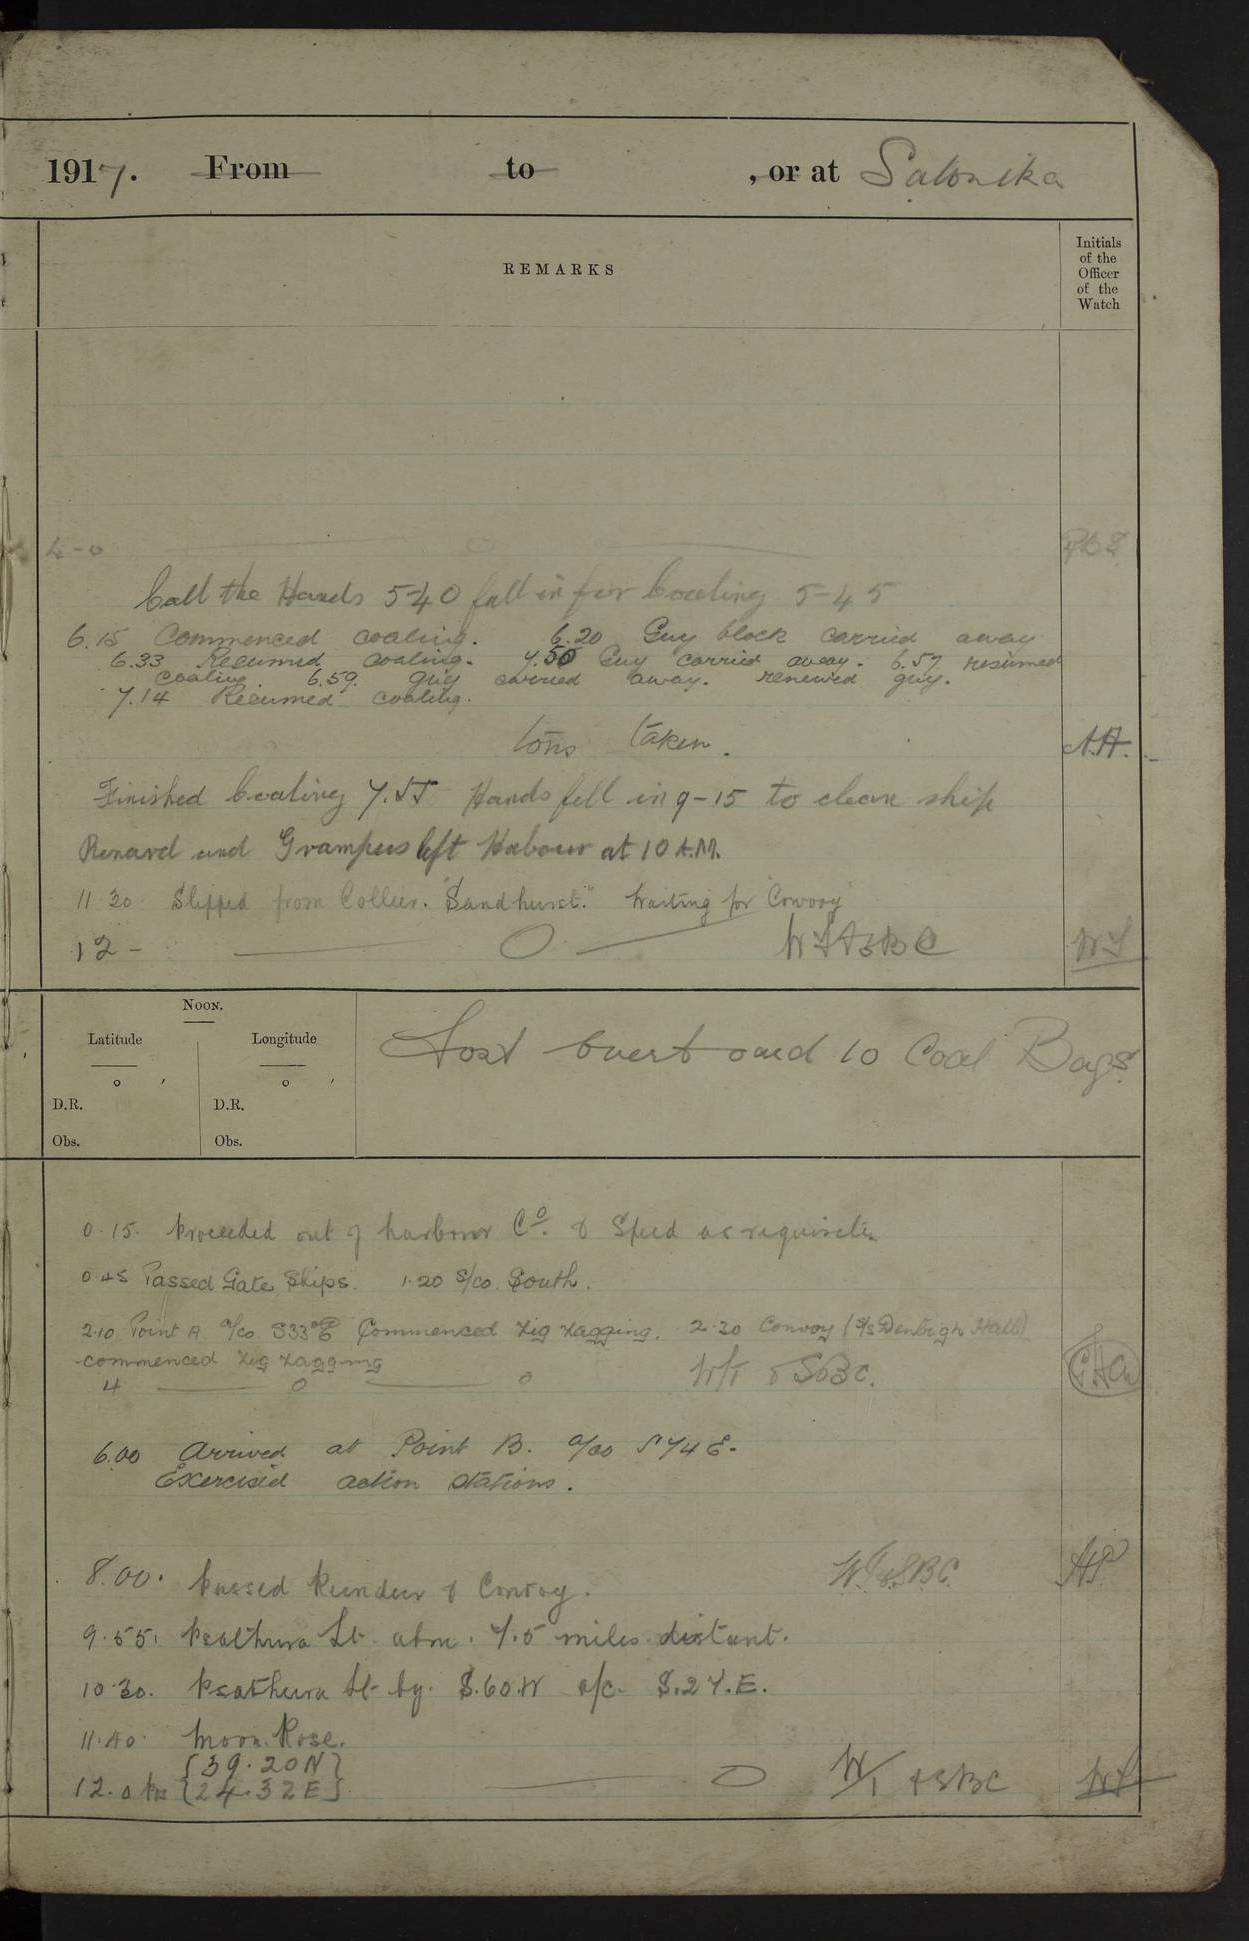 1917. From to , or at Salonika
REMARKS
Initials
of the
Officer
of the
Watch
4-0 0
Call the Hands 5-40 fall in for Coaling 5-45
6.15 Commenced coaling. 6.20 Guy block carried away
6.33 Resumed coaling. 7.50 Guy carried away. 6.57 resumed
coaling. 6.59. guy carried away. renewed guy.
7.14 Resumed coaling.
tons taken. A.H.
Finished Coaling 7.55 Hands fell in 9-15 to clean ship
Renard and Grampus left Habour at 10 A.M.
11.30 Slipped from Collier. "Sandhurst." Waiting for Convoy
12 - 0 WS
Noon.
Latitude Longitude
° ′ ° ′
D.R. D.R.
Obs. Obs.
Lost Overboard 10 Coal Bags.
0.15. Proceeded out of harbour Co. & Speed as requisite.
0.45 Passed Gate Ships. 1.20 s/co. South.
2.10 Point A. a/co S33°E Commenced Zig Zagging. 2.20 Convoy (S/S Denbigh Hall)
commenced Zig Zagging
4 0 0 W/T & SBC.
6.00 Arrived at Point B. a/co S 74 E.
Exercised action stations.
W.T. & SBC.
8.00. Passed Reindeer & Convoy.
9.55. Psathura Lt. abm. 7.5 miles distant.
10.30. Psathura Lt by. S.60.W a/c. S.27.E.
11.40. Moon Rose.
{39.20N}
12.0 Pos {24.32E} 0 W/T & SBC WS